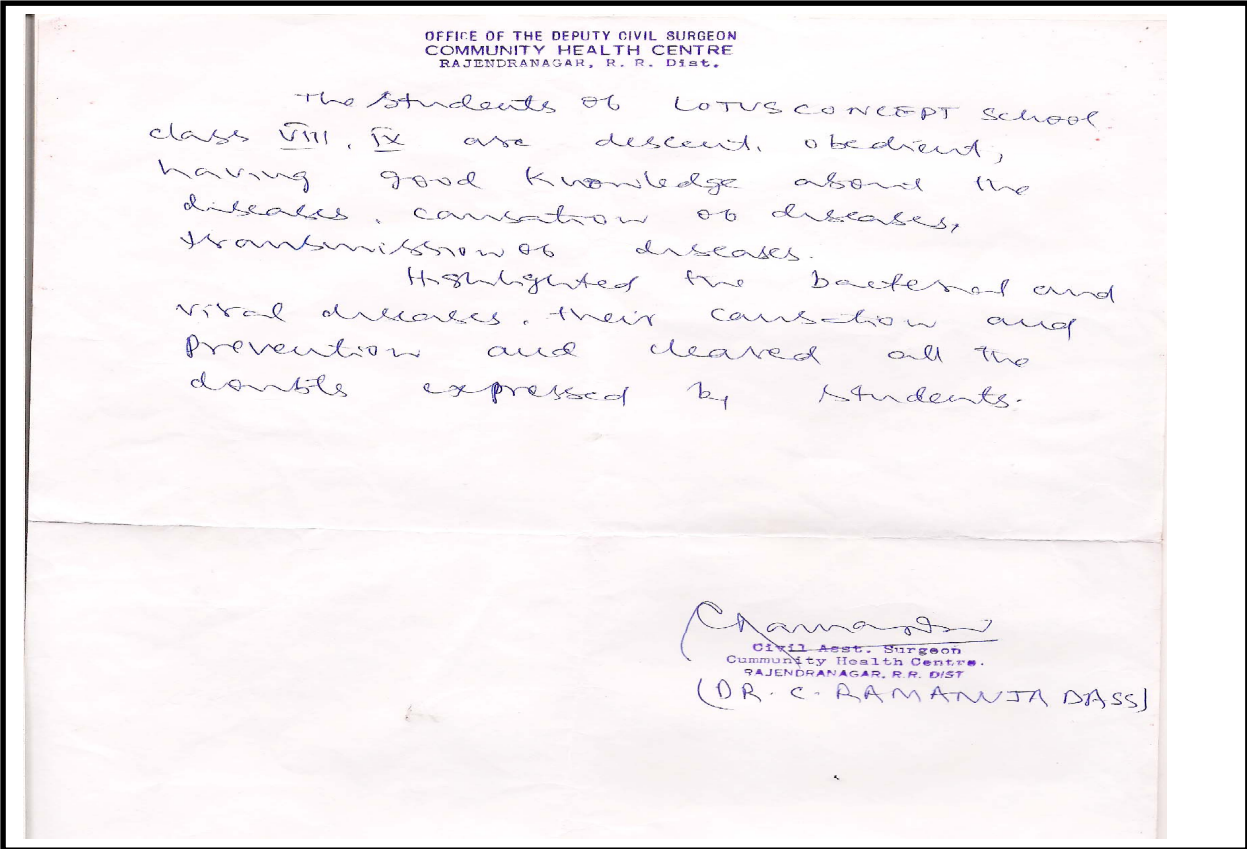 OFFICE OF THE DEPUTY CIVIL SURGEON
COMMUNITY HEALTH CENTRE
RAJENDRANAGAR, R. R. Dist.
The Students of LOTUS CONCEPT School
class VIII, IX are descent, obedient,
having good knowledge about the
diseases, causation of diseases,
transmission of diseases.
Highlighted the bacterial and
viral diseases, their causation and
prevention and cleared all the
doubts expressed by students.
Civil Asst. Surgeon
Cummunity Health Centre.
RAJENDRANAGAR, R.R. DIST
(DR. C. RAMANUJA DASS)